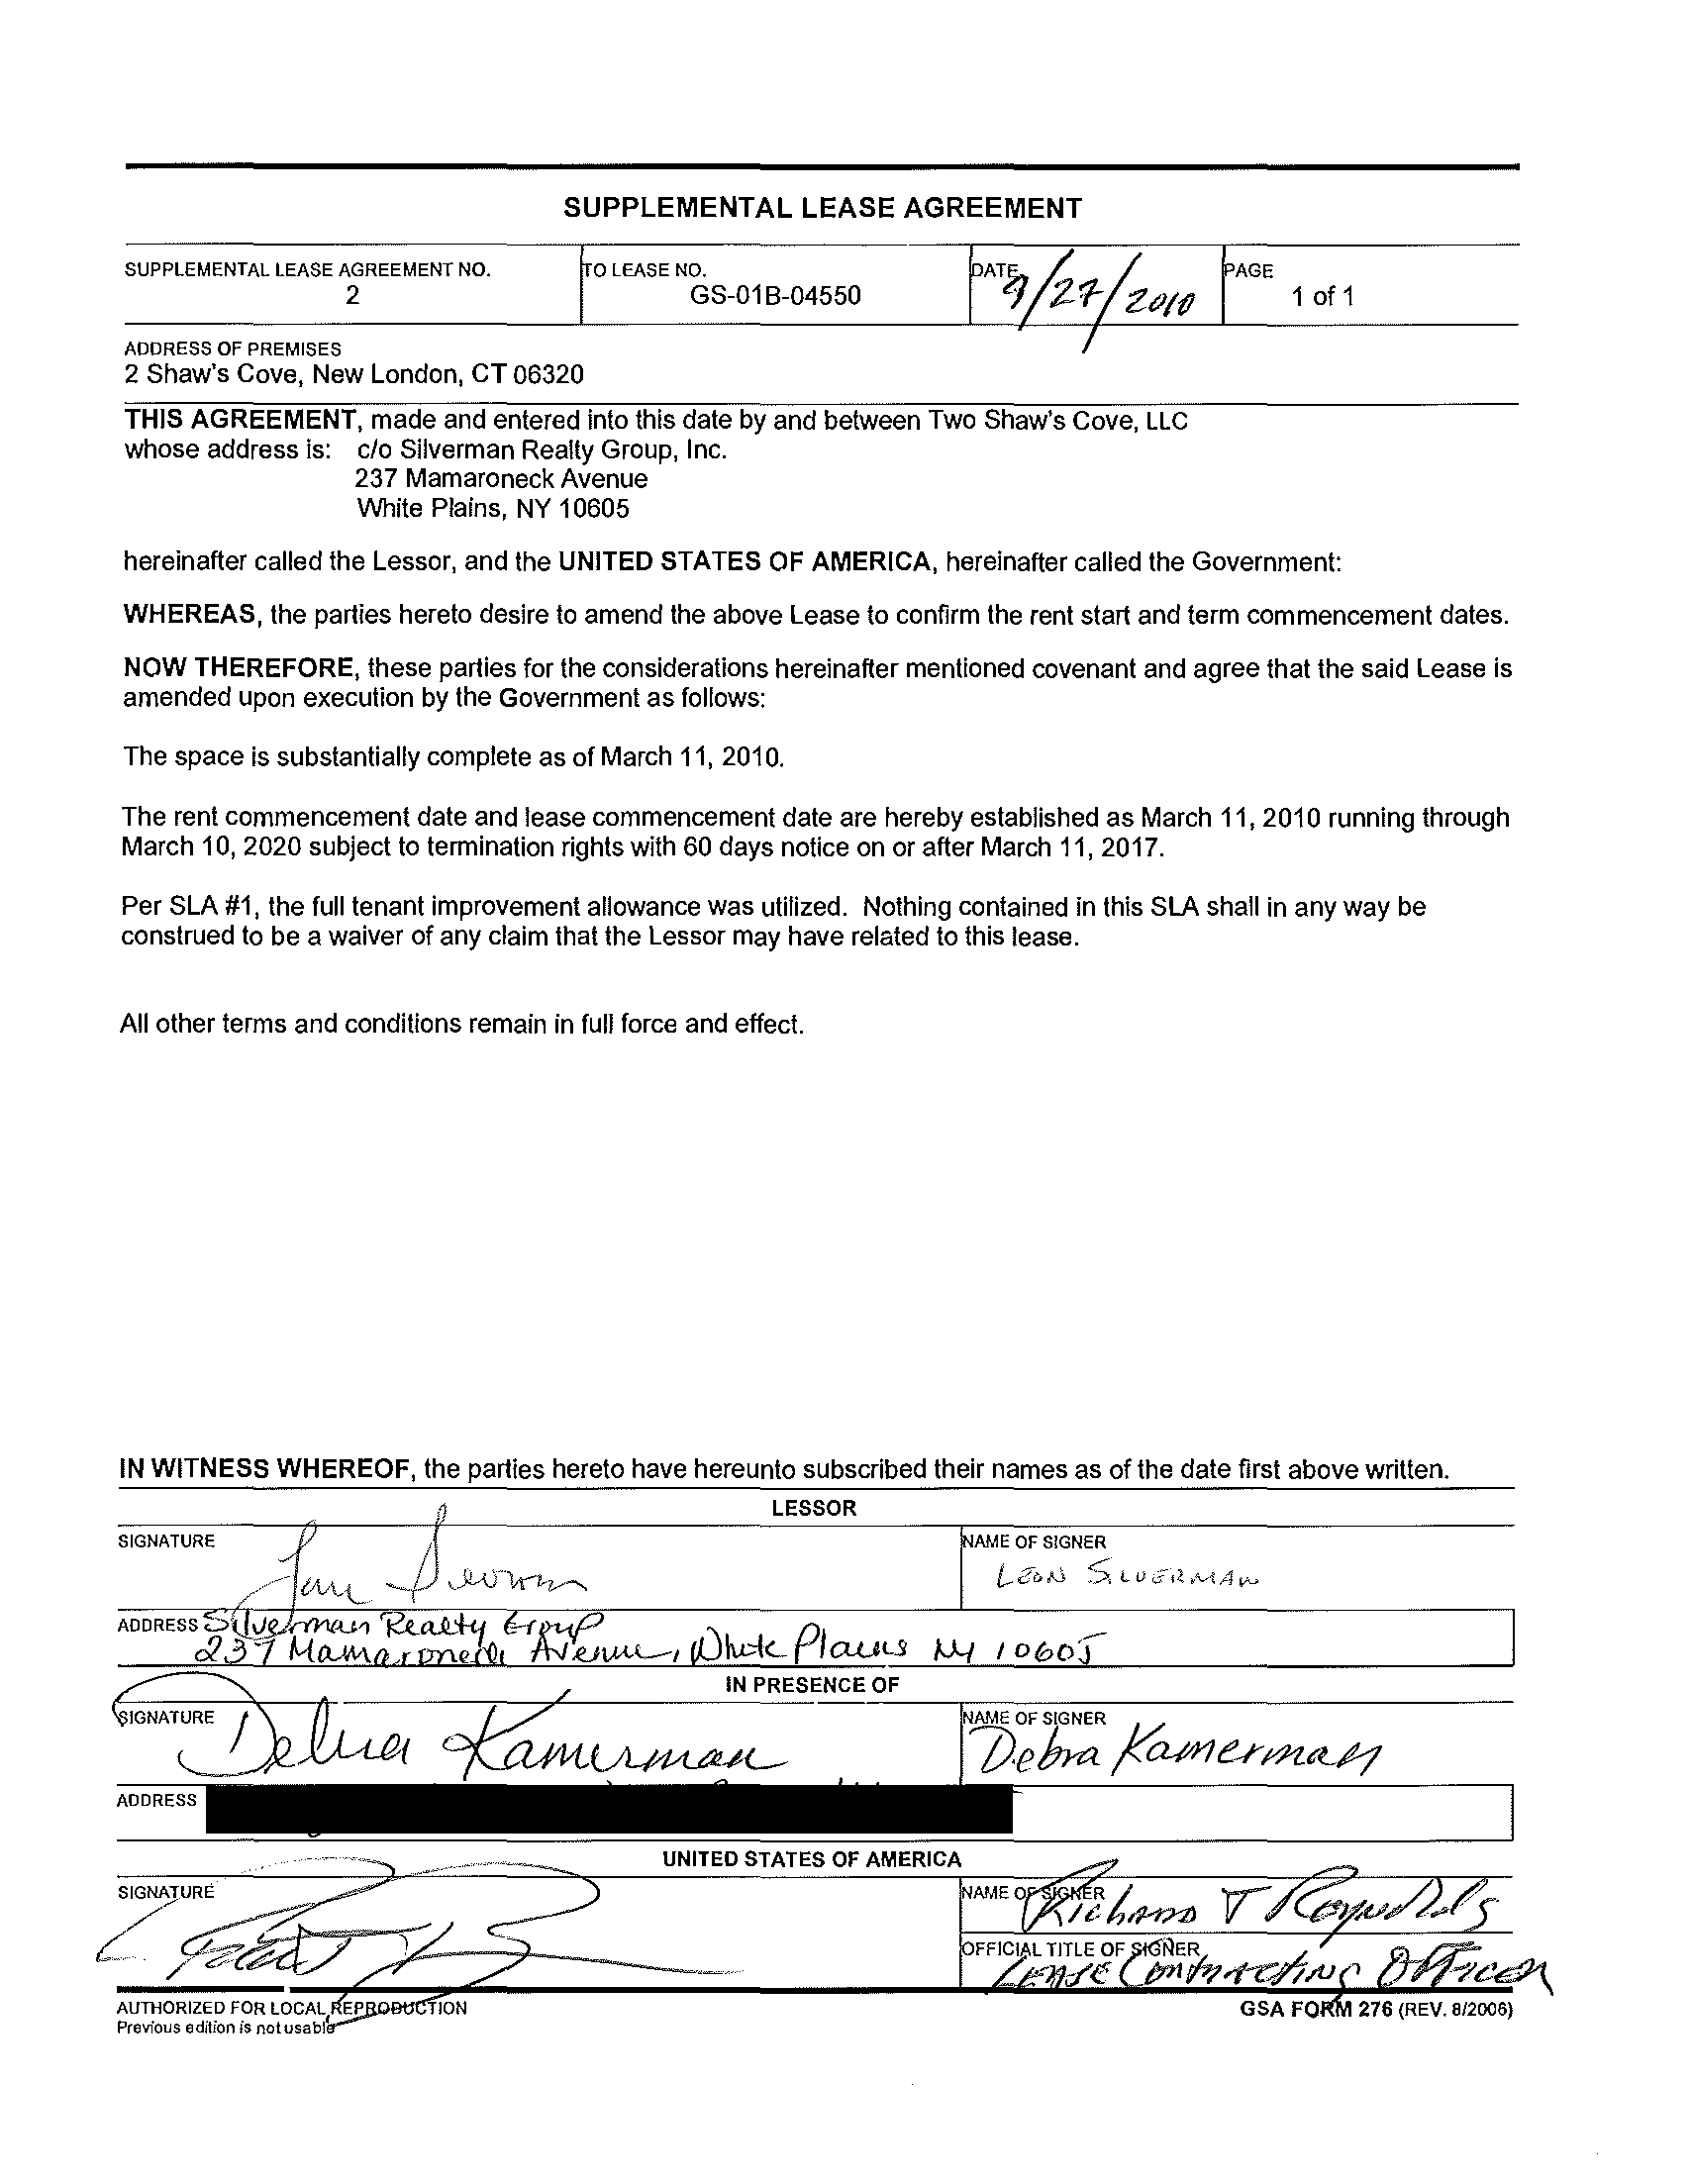 SUPPLEMENTAL LEASE AGREEMENT
SUPPLEMENTAL LEASE AGREEMENT NO.
2
TO LEASE NO.
GS-01B-04550
DATE
9/27/2010
PAGE
1 of 1
ADDRESS OF PREMISES
2 Shaw's Cove, New London, CT 06320
THIS AGREEMENT, made and entered into this date by and between Two Shaw's Cove, LLC
whose address is: c/o Silverman Realty Group, Inc.
237 Mamaroneck Avenue
White Plains, NY 10605
hereinafter called the Lessor, and the UNITED STATES OF AMERICA, hereinafter called the Government:
WHEREAS, the parties hereto desire to amend the above Lease to confirm the rent start and term commencement dates.
NOW THEREFORE, these parties for the considerations hereinafter mentioned covenant and agree that the said Lease is
amended upon execution by the Government as follows:
The space is substantially complete as of March 11, 2010.
The rent commencement date and lease commencement date are hereby established as March 11, 2010 running through
March 10, 2020 subject to termination rights with 60 days notice on or after March 11, 2017.
Per SLA #1, the full tenant improvement allowance was utilized. Nothing contained in this SLA shall in any way be
construed to be a waiver of any claim that the Lessor may have related to this lease.
All other terms and conditions remain in full force and effect.
IN WITNESS WHEREOF, the parties hereto have hereunto subscribed their names as of the date first above written.
LESSOR
SIGNATURE
NAME OF SIGNER
LEON SILVERMAN
ADDRESS Silverman Realty Group
237 Mamaroneck Avenue, White Plains NY 10605
IN PRESENCE OF
SIGNATURE
Debra Kamerman
NAME OF SIGNER
Debra Kamerman
ADDRESS
UNITED STATES OF AMERICA
SIGNATURE
NAME OF SIGNER
Richard T Reynolds
OFFICIAL TITLE OF SIGNER
LEASE Contracting Officer
AUTHORIZED FOR LOCAL REPRODUCTION
Previous edition is not usable
GSA FORM 276 (REV. 8/2006)